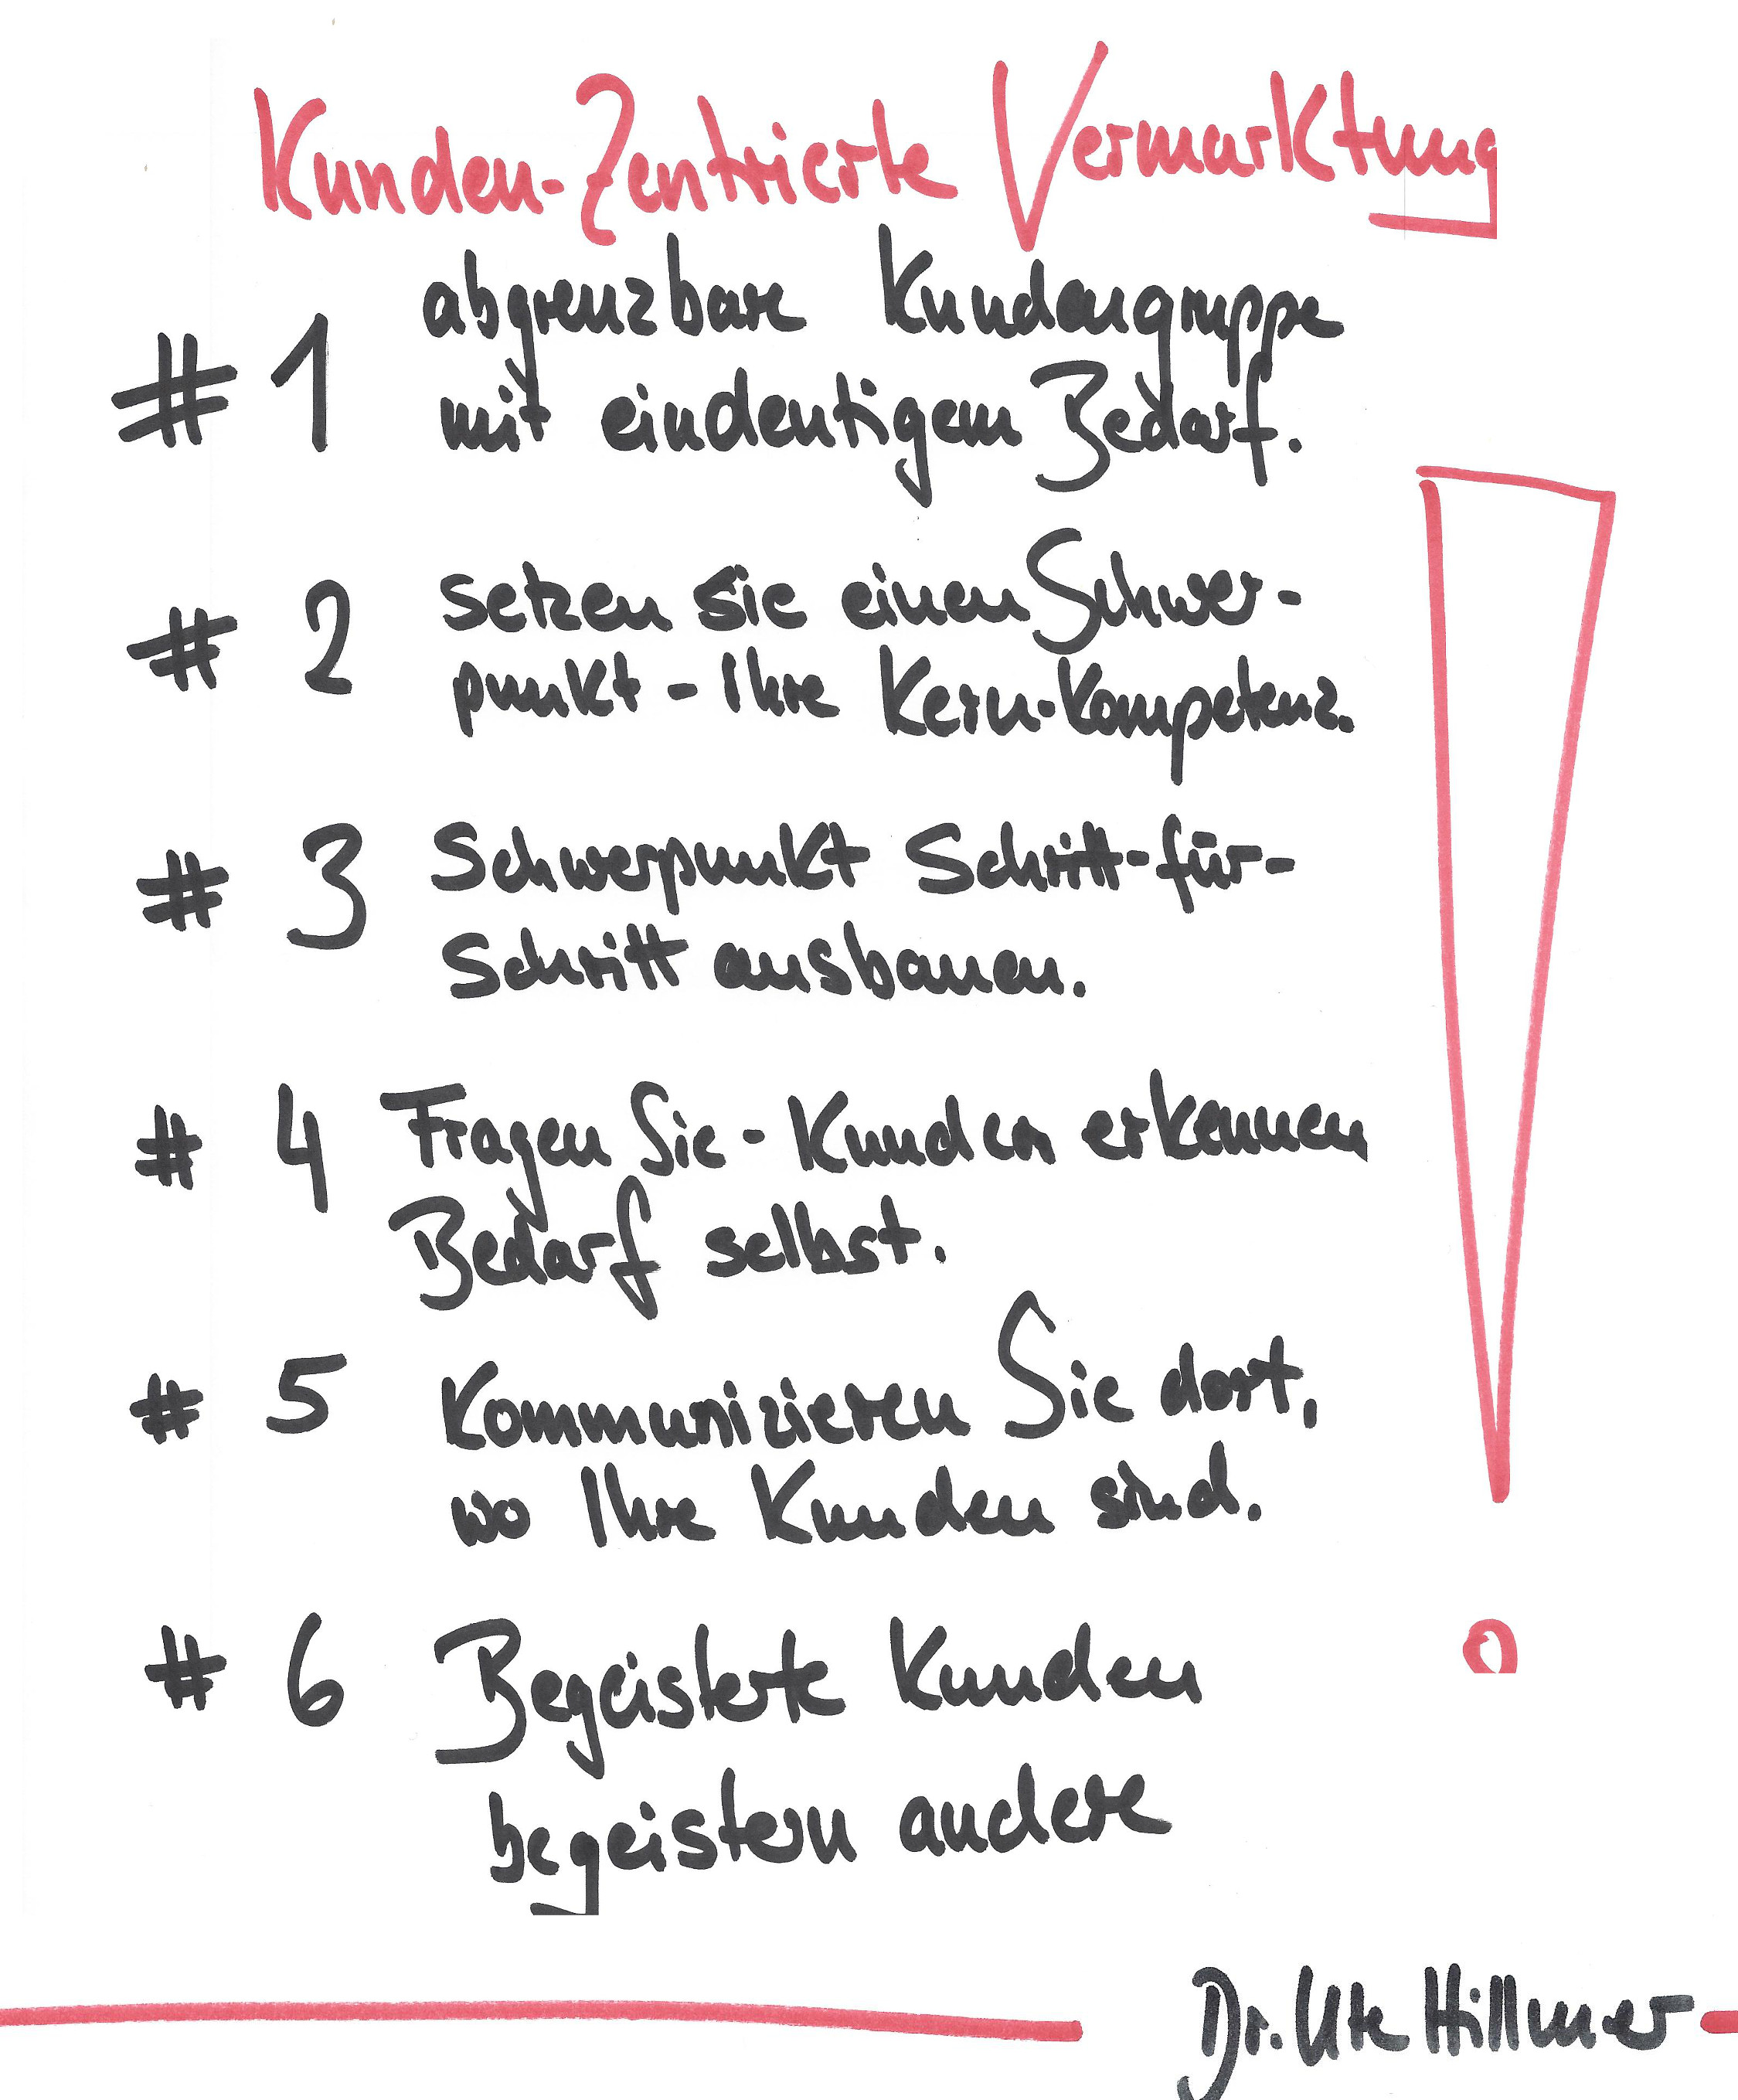 Kunden-Zentrierte Vermarktung
# 1 abgrenzbare Kundengruppe
mit eindeutigem Bedarf.
# 2 setzen Sie einen Schwer-
punkt - Ihre Kern-Kompetenz.
# 3 Schwerpunkt Schritt-für-
Schritt ausbauen.
# 4 Fragen Sie - Kunden erkennen
Bedarf selbst.
# 5 Kommunizieren Sie dort,
wo Ihre Kunden sind.
# 6 Begeisterte Kunden
begeistern andere
!
Dr. Ute Hillmer